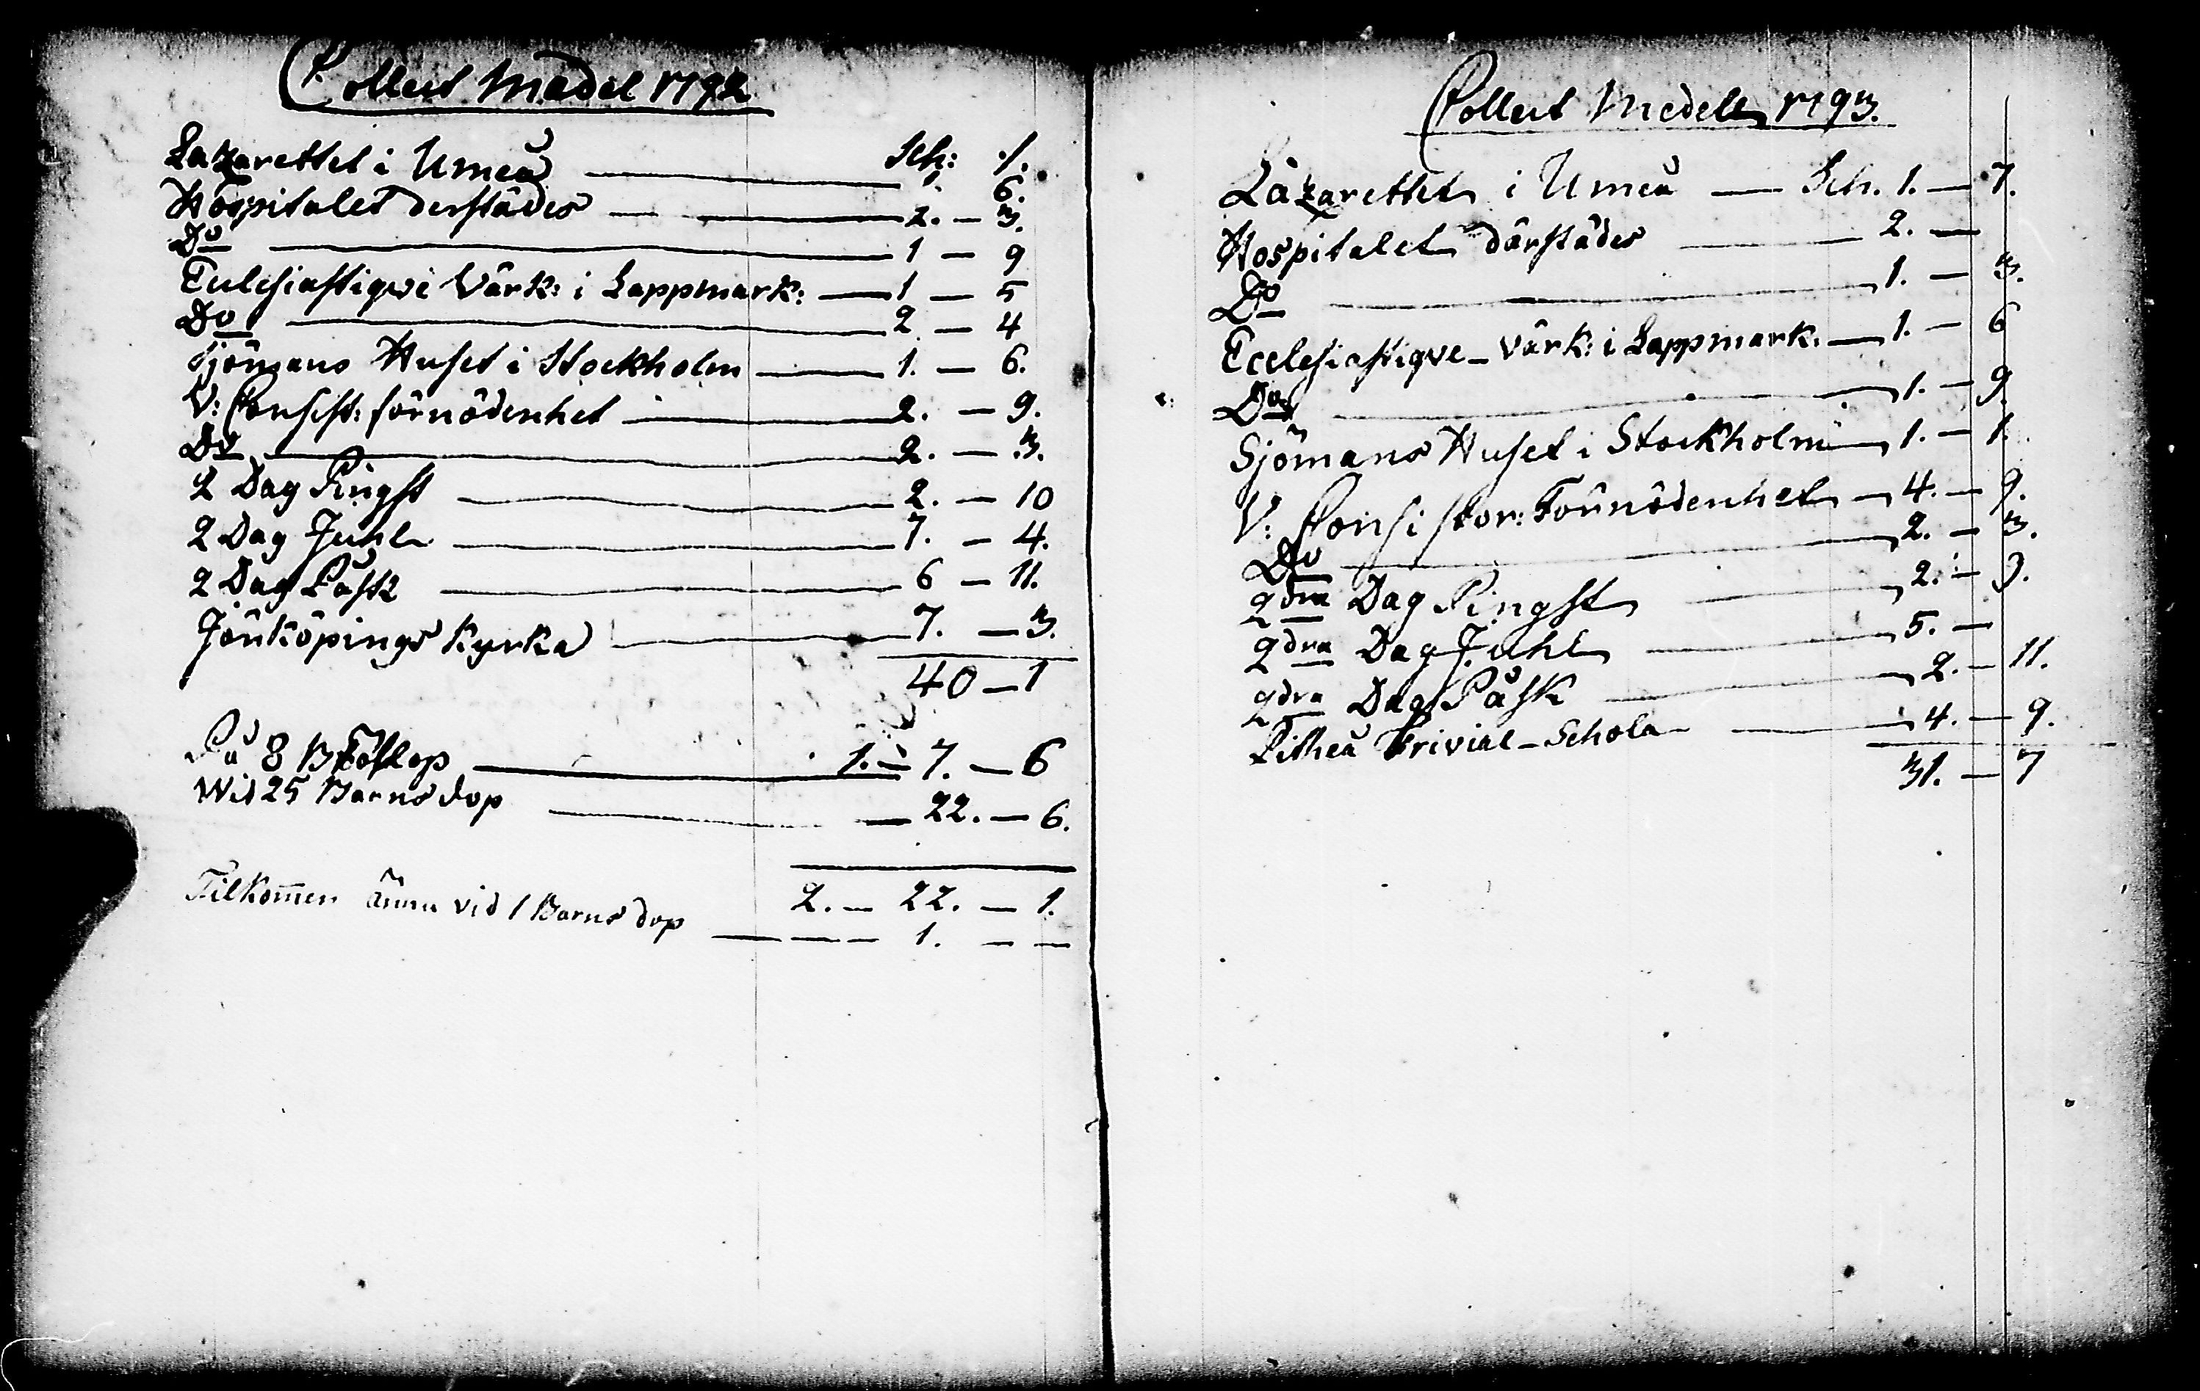 Collect Medel 1792
Sch: .|.
Lazarettet i Umeå — 1. 6.
Hospitalet derstädes — 2. — 3.
Do — 1 — 9
Ecclesiastiqve Värk: i Lappmark: — 1 — 5
Do — 2 — 4
Sjömans Huset i Stockholm — 1. — 6.
V: Consist: förnödenhet — 2. — 9.
Do — 2. — 3.
2 Dag Pingst — 2. — 10
2 Dag Juhl — 7. — 4.
2 Dag Påsk — 6 — 11.
Jönköpings Kyrka — 7. — 3.
40 — 1
På 8 Bröllop — 1. — 7. — 6
Wid 25 Barnsdop — 22. — 6.
2. — 22. — 1.
Tilkom̅en ännu vid 1 Barnsdop — 1. — —
Collect Medel 1793.
Lazarettet i Umeå — Sch. 1. — 7.
Hospitalet därstädes — 2. —
Do — 1. — 3.
Ecclesiastiqve Värk: i Lappmark. — 1. — 6
Do — 1. — 9.
Sjömans Huset i Stockholm — 1. — 1.
V: Consistor: Förnödenhet — 4. — 9.
Do — 2. — 3.
2dra Dag Pingst — 2. — 9.
2dra Dag Juhl — 5. —
2dra Dag Påsk — 2. — 11.
Pitheå Trivial-Schola — 4. — 9.
31. — 7